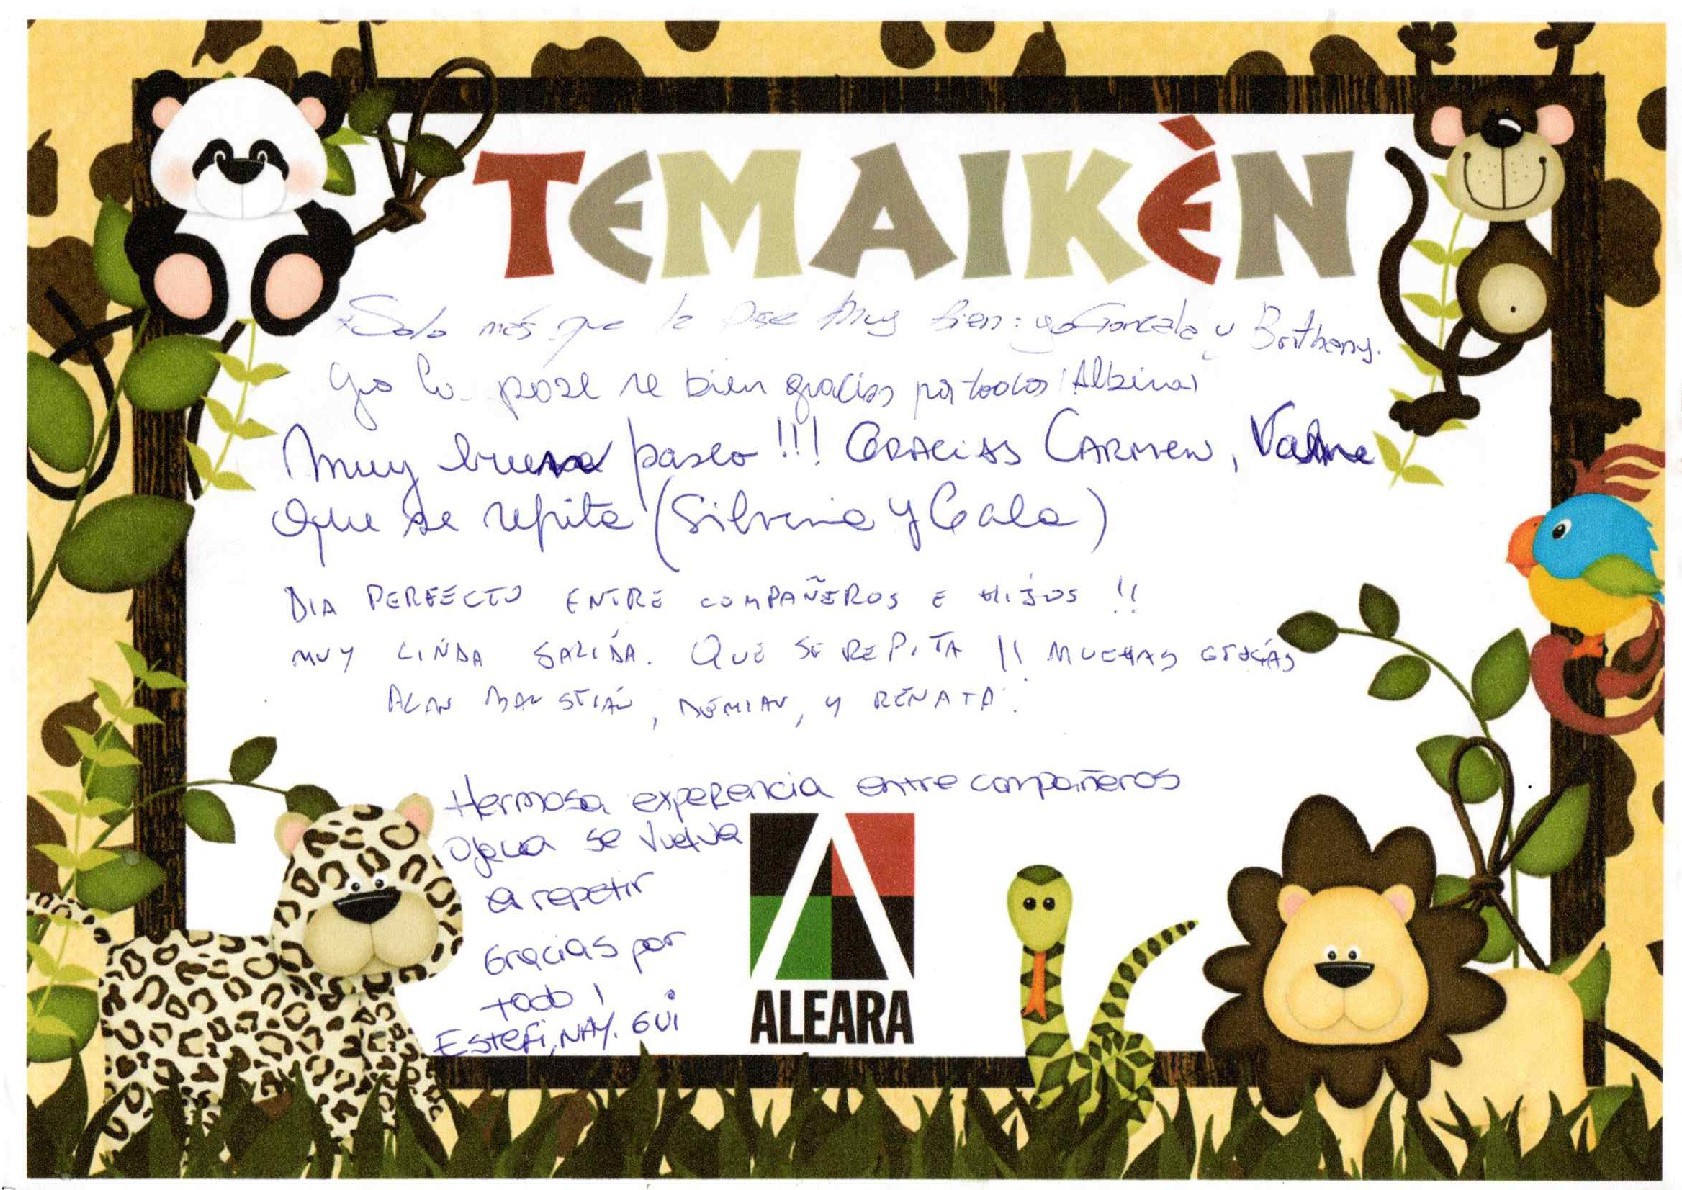 TEMAIKÈN
Solo más que lo pase muy bien: yo Gonzalo y Brithany.
Yo la pase re bien gracias por todos! Albina!
Muy buena paseo!!! GRACIAS CARMEN,
Que se repita (Silvina y Cala)
DIA PERFECTO ENTRE COMPAÑEROS E HIJOS !!
MUY LINDA SALIDA. QUE SE REPITA !! MUCHAS GRACIAS
ALAN, DEMIAN, Y RENATA.
Hermosa experencia entre compañeros
Ojala se vuelva
a repetir
Gracias por
todo !
ESTEFI, NAY. GUI
ALEARA